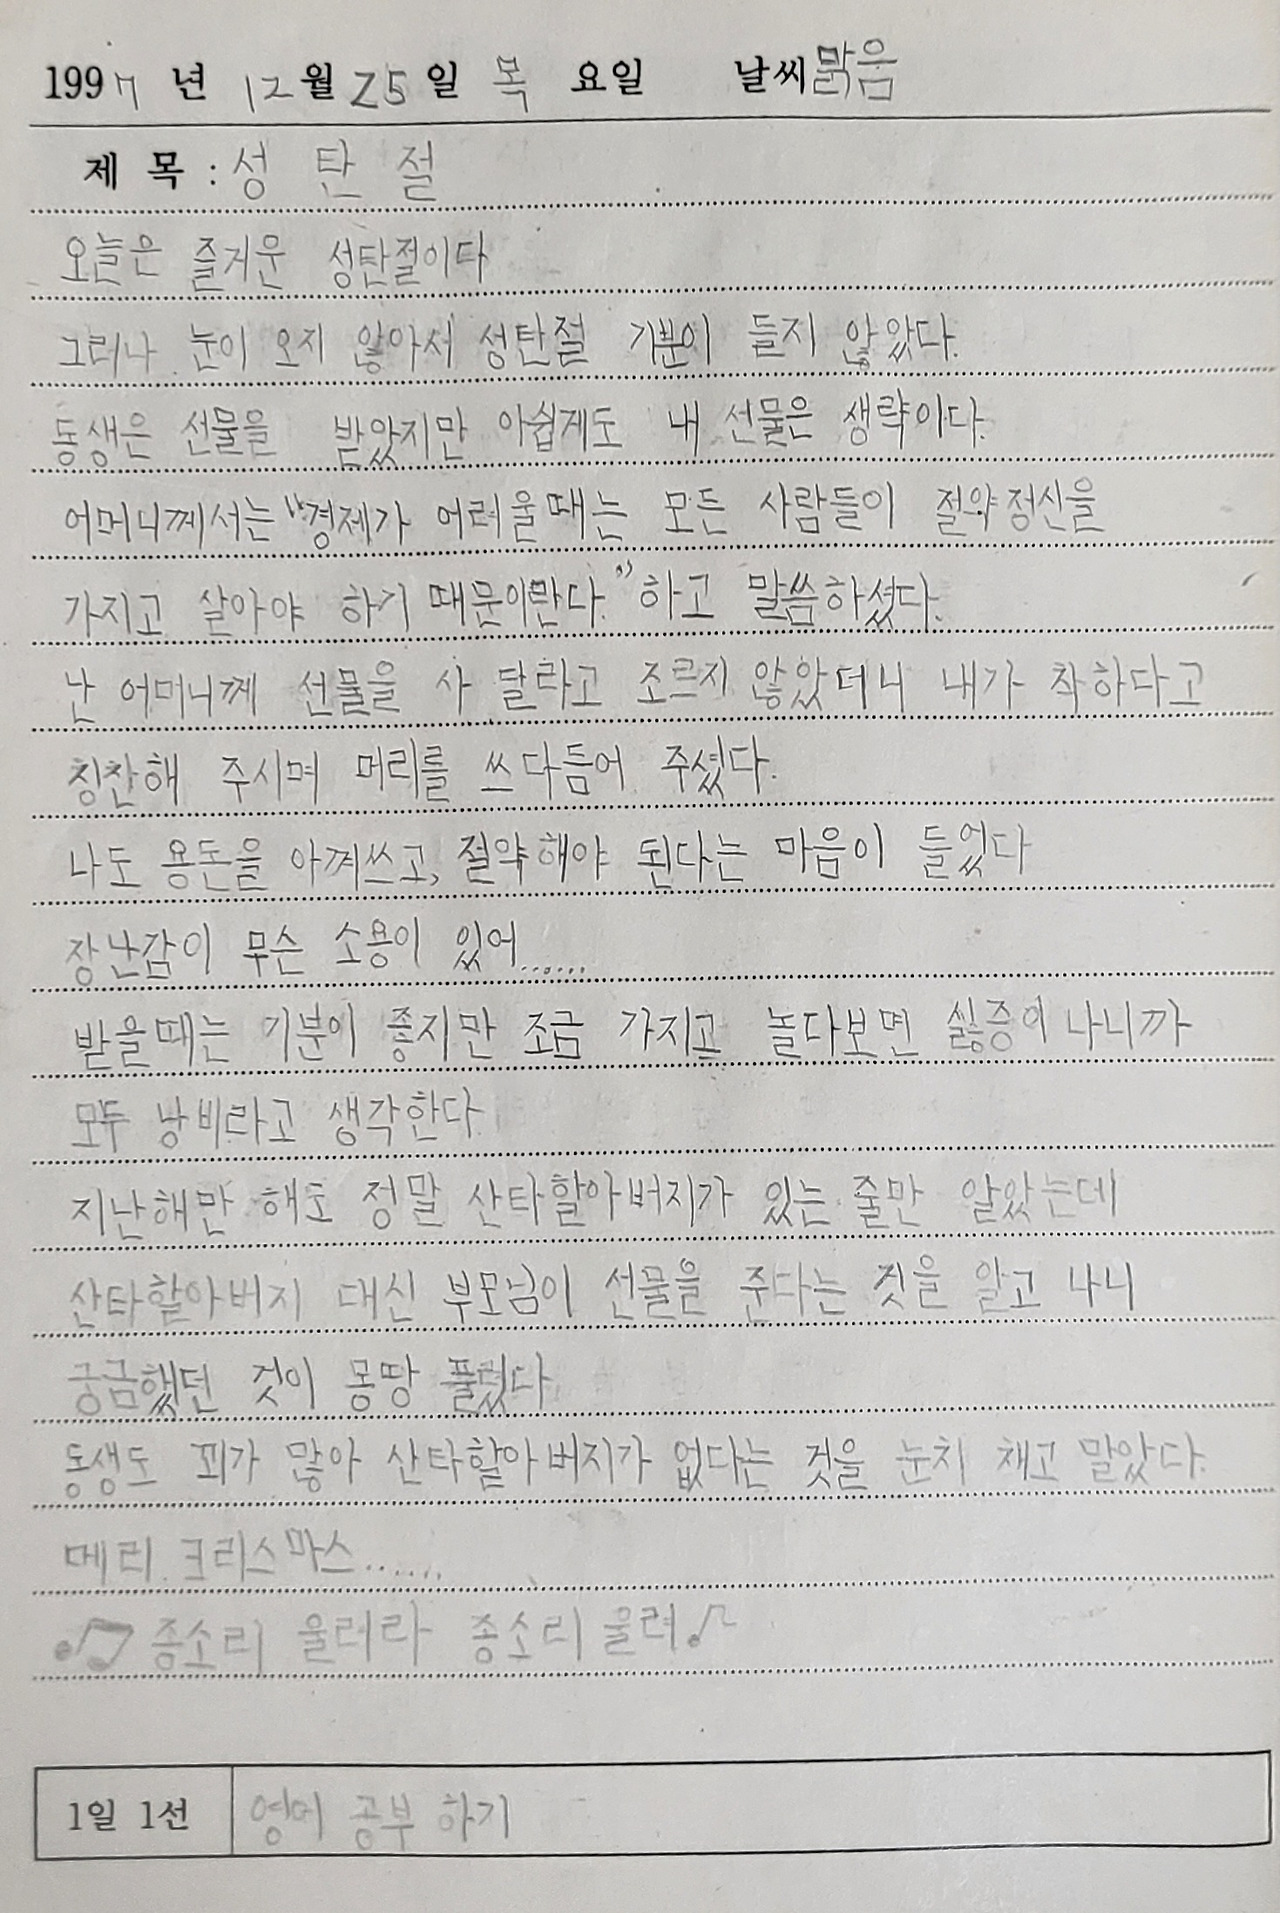 1997 년 12월 25일 목 요일 날씨 맑음
제 목 : 성 탄 절
오늘은 즐거운 성탄절이다
그러나 눈이 오지 않아서 성탄절 기분이 들지 않았다.
동생은 선물을 받았지만 아쉽게도 내 선물은 생략이다.
어머니께서는 "경제가 어려울때는 모든 사람들이 절약정신을
가지고 살아야 하기 때문이란다." 하고 말씀하셨다.
난 어머니께 선물을 사 달라고 조르지 않았더니 내가 착하다고
칭찬해 주시며 머리를 쓰다듬어 주셨다.
나도 용돈을 아껴쓰고, 절약해야 된다는 마음이 들었다
장난감이 무슨 소용이 있어......
받을때는 기분이 좋지만 조금 가지고 놀다보면 싫증이 나니까
모두 낭비라고 생각한다.
지난해만 해도 정말 산타할아버지가 있는 줄만 알았는데
산타할아버지 대신 부모님이 선물을 준다는 것을 알고 나니
궁금했던 것이 몽땅 풀렸다.
동생도 꾀가 많아 산타할아버지가 없다는 것을 눈치 채고 말았다.
메리 크리스마스......
♫ 종소리 울려라 종소리 울려 ♫
1일 1선 영어 공부 하기